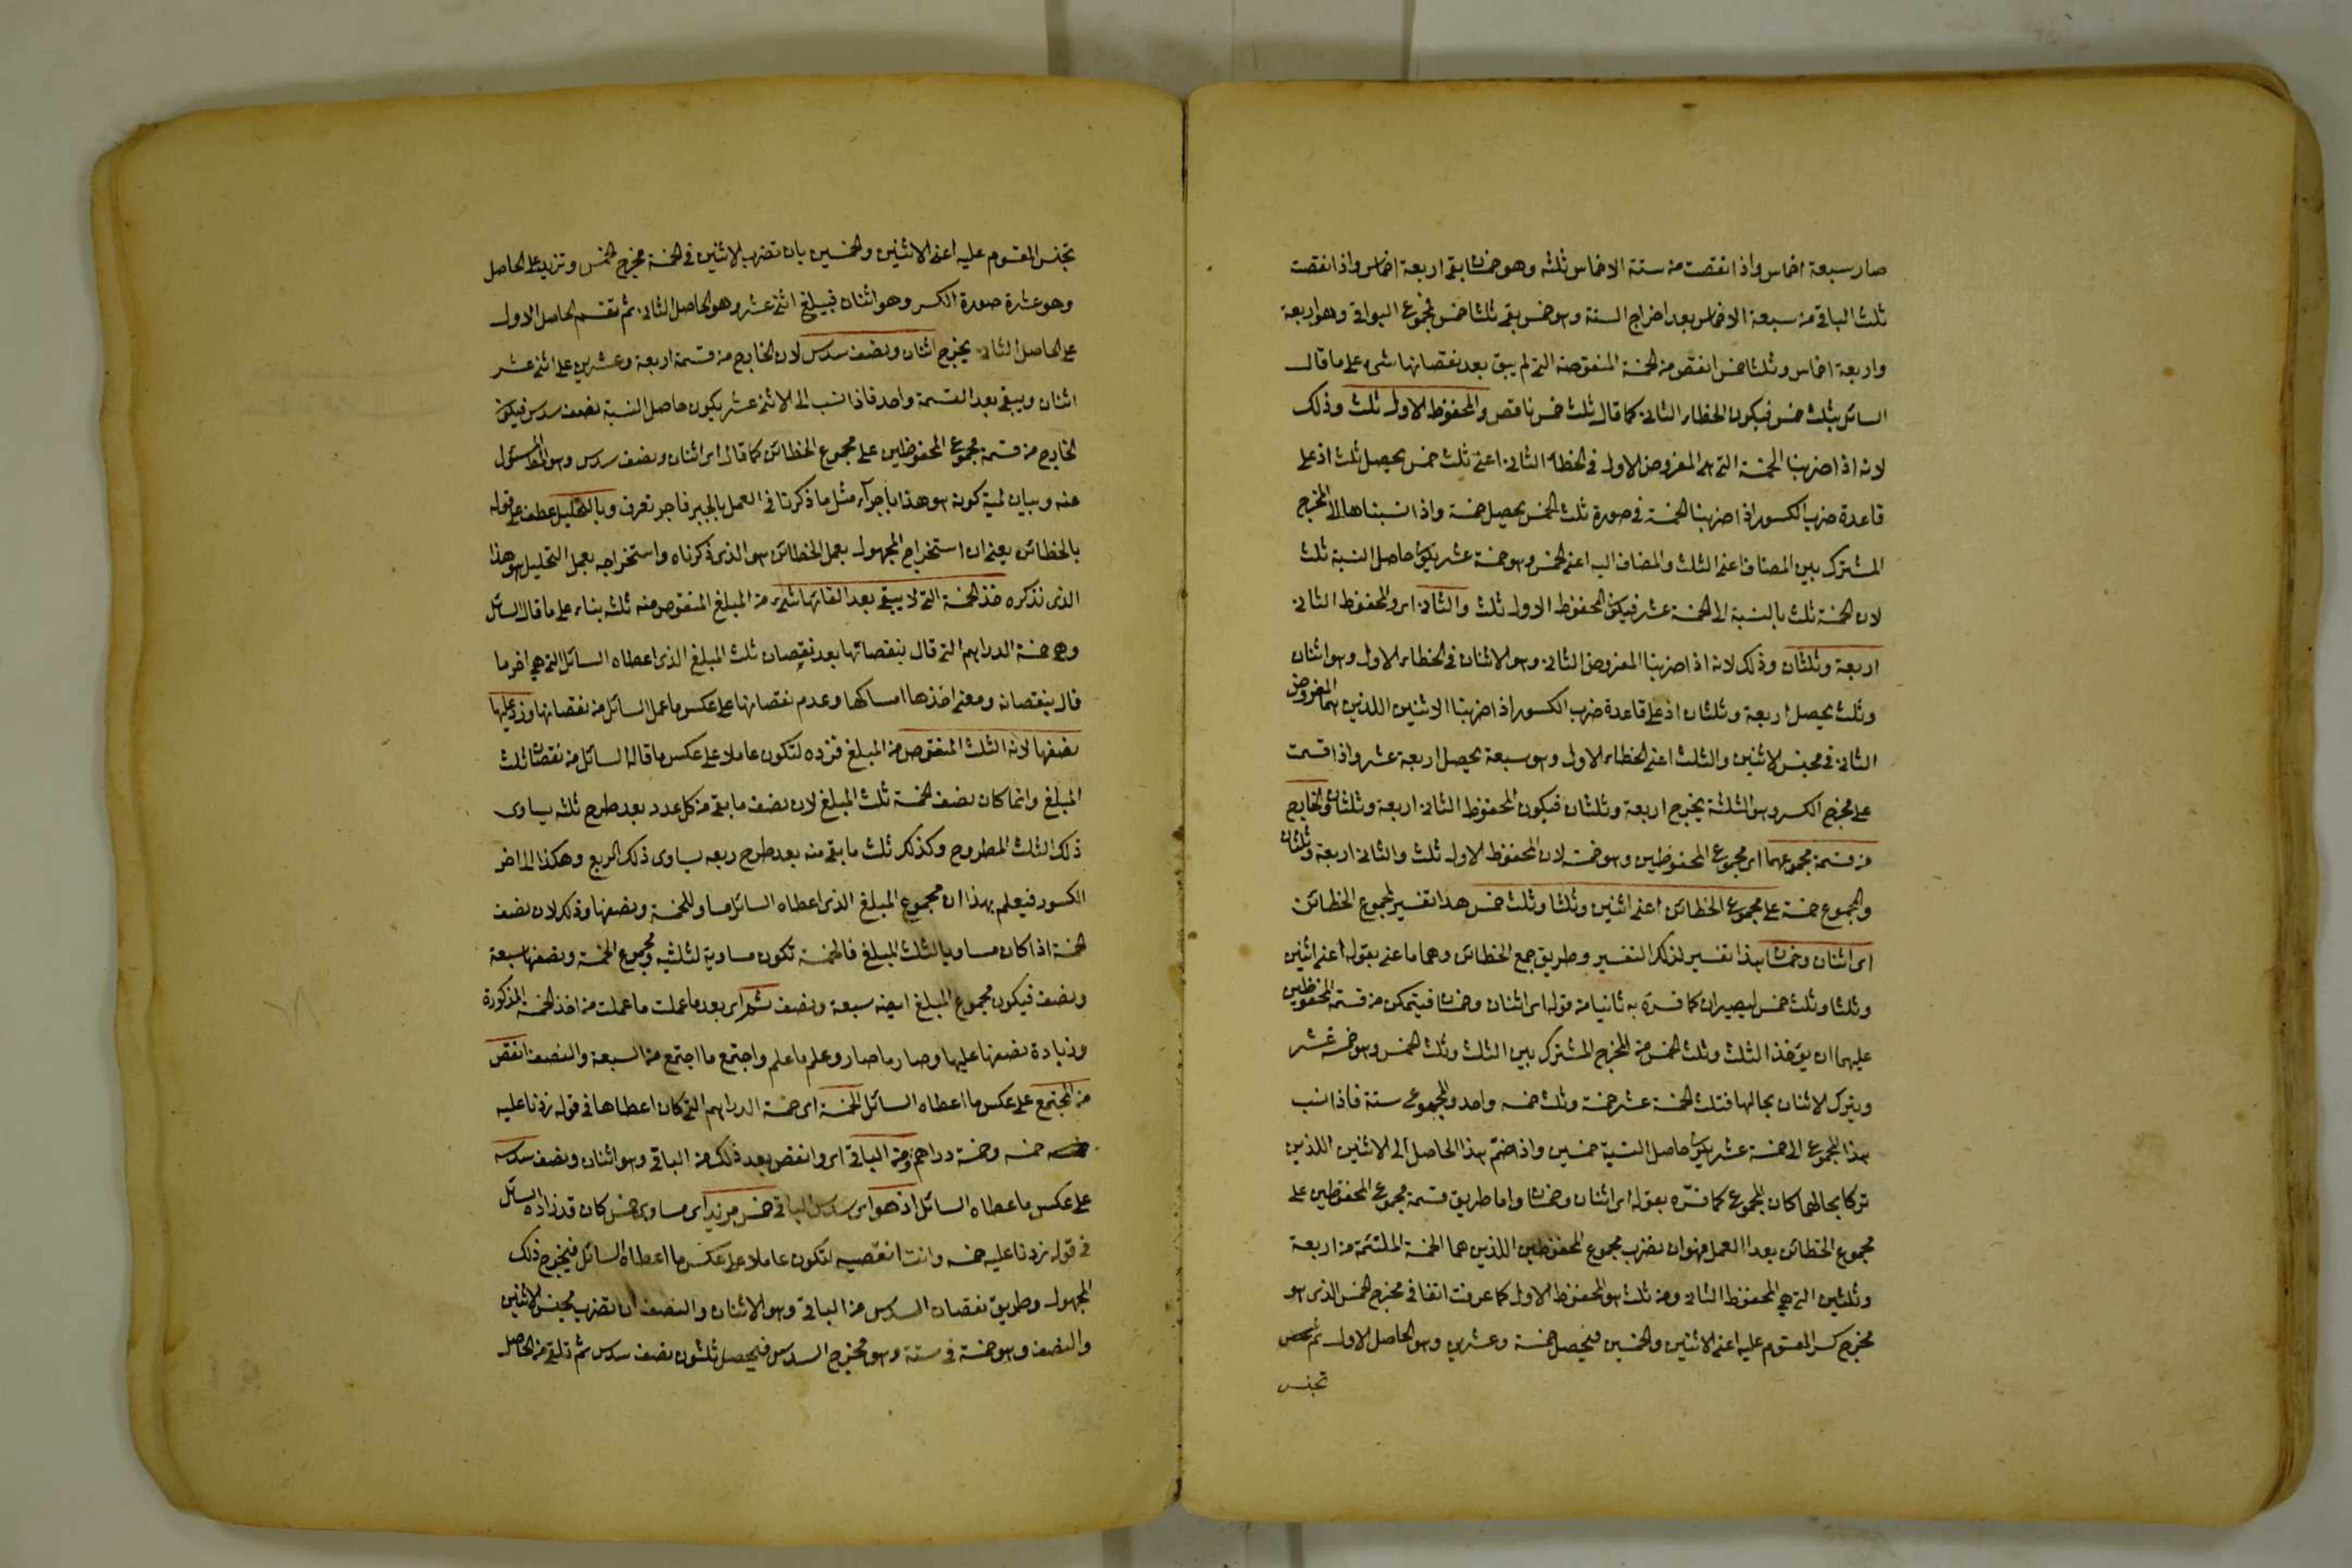 صار سبعة اخماس واذا نقصت من ستة الاخماس ثلثه وهو خمسان بقى اربعة اخماس واذا نقصت
ثلث الباقى من سبعة الاخماس بعد اخراج الستة وهو خمس بقى ثلثا خمس مجموع البواقى وهو اربعة
واربعة اخماس وثلثا خمس انقص من الخمسة المنقوصة التى لم يبق بعد نقصانها شىء على ما قال
السائل بثلث خمس فيكون الخطاء الثانى كما قال ثلث خمس ناقص والمحفوظ الاول ثلث وذلك
لانه اذا ضربنا الخمسة التى هى المفروض الاول فى الخطاء الثانى اعنى ثلث خمس يحصل ثلث اذ على
قاعدة ضرب الكسور اذا ضربنا الخمسة فى صورة ثلث الخمس يحصل خمسة واذا نسبناها الى المخرج
المشترك بين المضاف اعنى الثلث والمضاف اليه اعنى الخمس وهو خمسة عشر يكون حاصل النسبة ثلث
لان الخمسة ثلث بالنسبة الى الخمسة عشر فيكون المحفوظ الاول ثلث والثانى اى والمحفوظ الثانى
اربعة وثلثان وذلك لانه اذا ضربنا المفروض الثانى وهو الاثنان فى الخطاء الاول وهو اثنان
وثلث يحصل اربعة وثلثان اذ على قاعدة ضرب الكسور اذا ضربنا الاثنين اللذين هما المفروض
الثانى فى مجنس الاثنين والثلث اعنى الخطاء الاول وهو سبعة يحصل اربعة عشر واذا قسمت
على مخرج الكسر وهو الثلثة يخرج اربعة وثلثان فيكون المحفوظ الثانى اربعة وثلثان والخارج
من قسمة مجموعهما اى مجموع المحفوظين وهو خمسة لان المحفوظ الاول ثلث والثانى اربعة وثلثان
والمجموع خمسة على مجموع الخطائين اعنى اثنين وثلثا وثلث خمس هذا تفسير لمجموع الخطائين
اى اثنان وخمسان هذا تفسير لذلك التفسير وطريق جمع الخطائين وهما ما عنى بقوله اعنى اثنين
وثلثا وثلث خمس ليصيران كما فسره به ثانيا من قوله اى اثنان وخمسان فيتمكن من قسمة المحفوظين
عليهما ان يؤخذ الثلث وثلث الخمس من المخرج المشترك بين الثلث وثلث الخمس وهو خمسة عشر
ويترك الاثنان بحالها فثلث الخمسة عشر خمسة وثلث خمسه واحد والمجموع ستة فاذا نسب
هذا المجموع الى خمسة عشر يكون حاصل النسبة خمسين واذا ضم هذا الحاصل الى الاثنين اللذين
تركا بحالهما كان المجموع كما فسره بقوله اى اثنان وخمسان واما طريق قسمة مجموع المحفوظين على
مجموع الخطائين بعد العمل فهو ان نضرب مجموع المحفوظين اللذين هما الخمسة الملتئمة من اربعة
وثلثين التى هى المحفوظ الثانى ومن ثلث هو المحفوظ الاول كما عرفت انفا فى مخرج الخمس الذى هو
مخرج كسر المقسوم عليه اعنى الاثنين والخمسين فيحصل خمسة وعشرين وهو الحاصل الاول ثم
تجنس
تجنس المقسوم عليه اعنى الاثنين والخمسين بان تضرب الاثنين فى الخمسة مخرج الخمس وتزيد على الحاصل
وهو عشرة صورة الكسر وهو اثنان فيبلغ اثنى عشر وهو الحاصل الثانى ثم تقسم الحاصل الاول
على الحاصل الثانى يخرج اثنان ونصف سدس لان الخارج من قسمة اربعة وعشرين على اثنى عشر
اثنان ويبقى بعد القسمة واحد فاذا نسب الى الاثنى عشر يكون حاصل النسبة نصف سدس فيكون
الخارج من قسمة مجموع المحفوظين على مجموع الخطائين كما قال اى اثنان ونصف سدس وهو المسئول
عنه وبيان لمية كونه هو هذا باجراء مثل ما ذكرنا فى العمل بالجبر فاجر تعرف وبالتحليل عطف على قوله
بالخطائين يعنى ان استخراج المجهول بعمل الخطائين هو الذى ذكرناه واستخراجه بعمل التحليل هو هذا
الذى نذكره خذ الخمسة التى لا يبقى بعد القائها شىء من المبلغ المنقوص منه ثلثه بناء على ما قال السائل
وهى خمسة الدراهم التى قال بنقصانها بعد نقصان ثلث المبلغ الذى اعطاه السائل التى هى اخر ما
قال بنقصانه ومعنى اخذها امساكها وعدم نقصانها على عكس ما عمل السائل من نقصانها وزد عليها
نصفها لانه الثلث المنقوص من المبلغ فتزده لتكون عاملا على عكس ما قاله السائل من نقصان ثلث
المبلغ وانما كان نصف الخمسة ثلث المبلغ لان نصف ما بقى من كل عدد بعد طرح ثلثه يساوى
ذلك الثلث المطروح وكذلك ثلث ما بقى منه بعد طرح ربعه يساوى ذلك الربع وهكذا الى اخر
الكسور فيعلم بهذا ان مجموع المبلغ الذى اعطاه السائل مساو للخمسة ونصفها وذلك لان نصف
الخمسة اذا كان مساويا لثلث المبلغ فالخمسة تكون مساوية لثلثيه ومجموع الخمسة ونصفها سبعة
ونصف فيكون مجموع المبلغ ايضه سبعة ونصف ثم اى بعد ما عملت ما عملت من اخذ الخمسة المذكورة
وزيادة نصفها عليها وصار ما صار وعلم ما علم واجتمع ما اجتمع من السبعة والنصف انقص
من المجتمع على عكس ما اعطاه السائل الخمسة اى خمسة الدراهم التى كان اعطاها فى قوله زدنا عليه
خمسه وخمسة دراهم ومن الباقى اى وانقص بعد ذلك من الباقى وهو اثنان ونصف سدسه
على عكس ما عطاه السائل اذ هو اى سدس الباقى خمس مزيد اى مساوى خمس كان قد زاده السائل
فى قوله زدنا عليه خمسه وانت انقصيه لتكون عاملا على عكس ما اعطاه السائل فيخرج ذلك
المجهول وطريق نقصان السدس من الباقى وهو الاثنان والنصف ان تضرب مجنس الاثنين
والنصف وهو خمسة فى ستة وهو مخرج السدس فيحصل ثلثون نصف سدس ثم تلقى من الحاصل